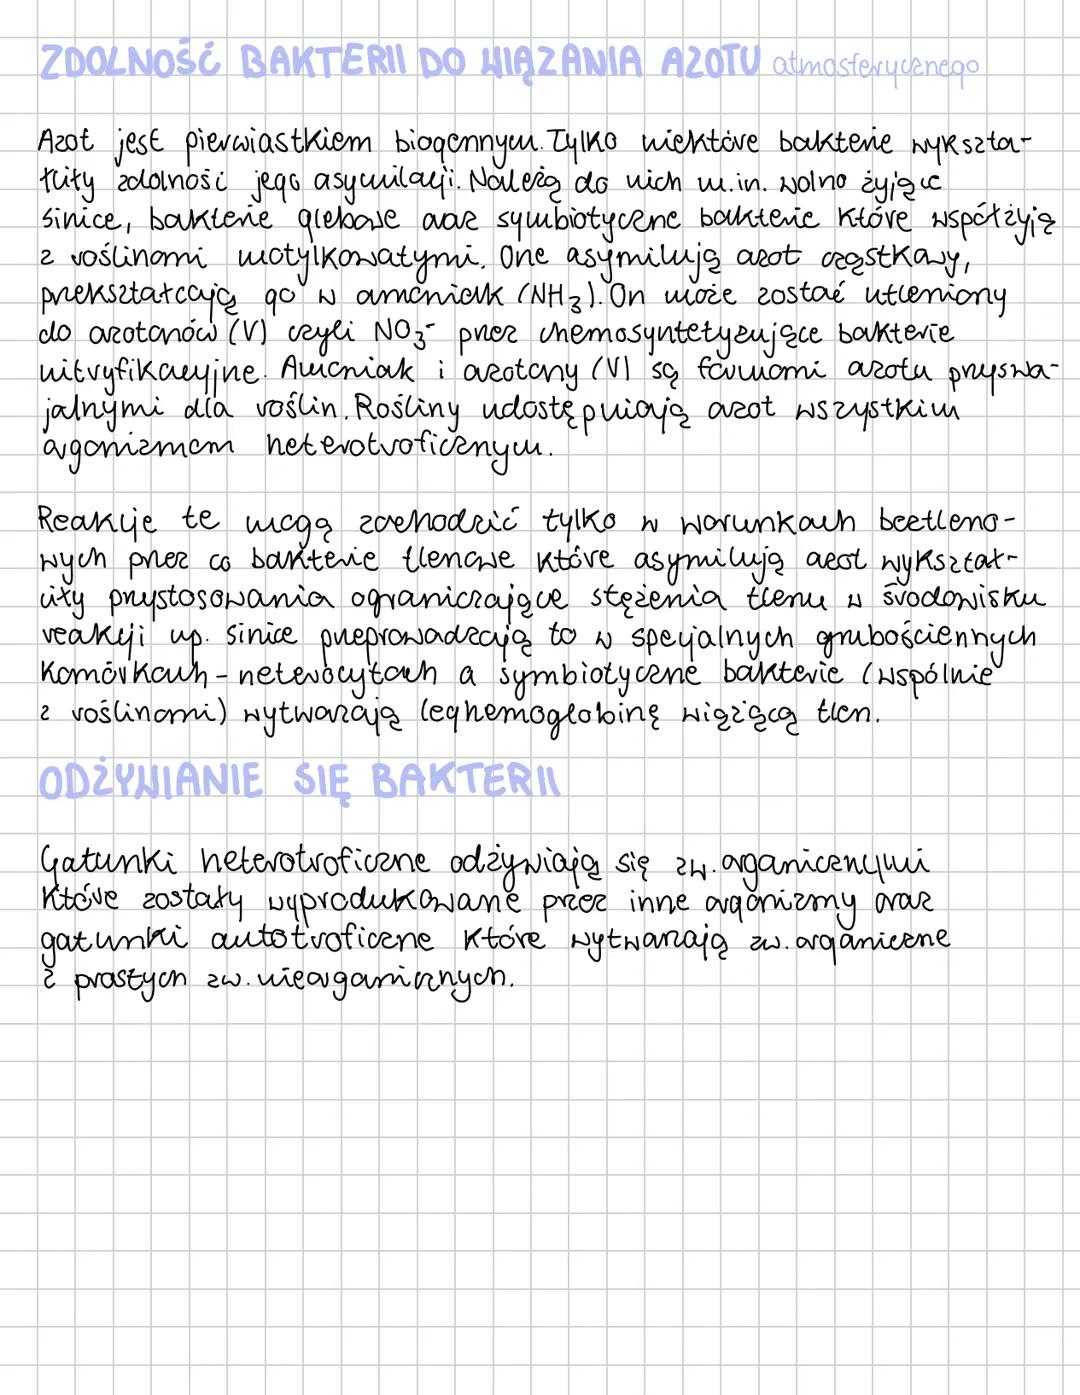 ZDOLNOŚĆ BAKTERII DO WIĄZANIA AZOTU atmosferycznego
Azot jest pierwiastkiem biogennym. Tylko niektóre bakterie wykszta-
łciły zdolność jego asymilacji. Należą do nich m.in. wolno żyjące
sinice, bakterie glebowe oraz symbiotyczne bakterie które współżyją
z roślinami motylkowatymi. One asymilują azot cząstkowy,
przekształcają go w amoniak (NH3). On może zostać utleniony
do azotanów (V) czyli NO3- przez chemosyntetyzujące bakterie
nitryfikacyjne. Amoniak i azotany (V) są formami azotu przyswa-
jalnymi dla roślin. Rośliny udostępniają azot wszystkim
organizmom heterotroficznym.
Reakcje te mogą zachodzić tylko w warunkach beztleno-
wych przez co bakterie tlenowe które asymilują azot wykształ-
ciły przystosowania ograniczające stężenia tlenu w środowisku
reakcji np. sinice przeprowadzają to w specjalnych grubościennych
komórkach - heterocytach a symbiotyczne bakterie (wspólnie
z roślinami) wytwarzają leghemoglobinę wiążącą tlen.
ODŻYWIANIE SIĘ BAKTERII
Gatunki heterotroficzne odżywiają się zw. organicznymi
które zostały wyprodukowane przez inne organizmy oraz
gatunki autotroficzne które wytwarzają zw. organiczne
z prostych zw. nieorganicznych.